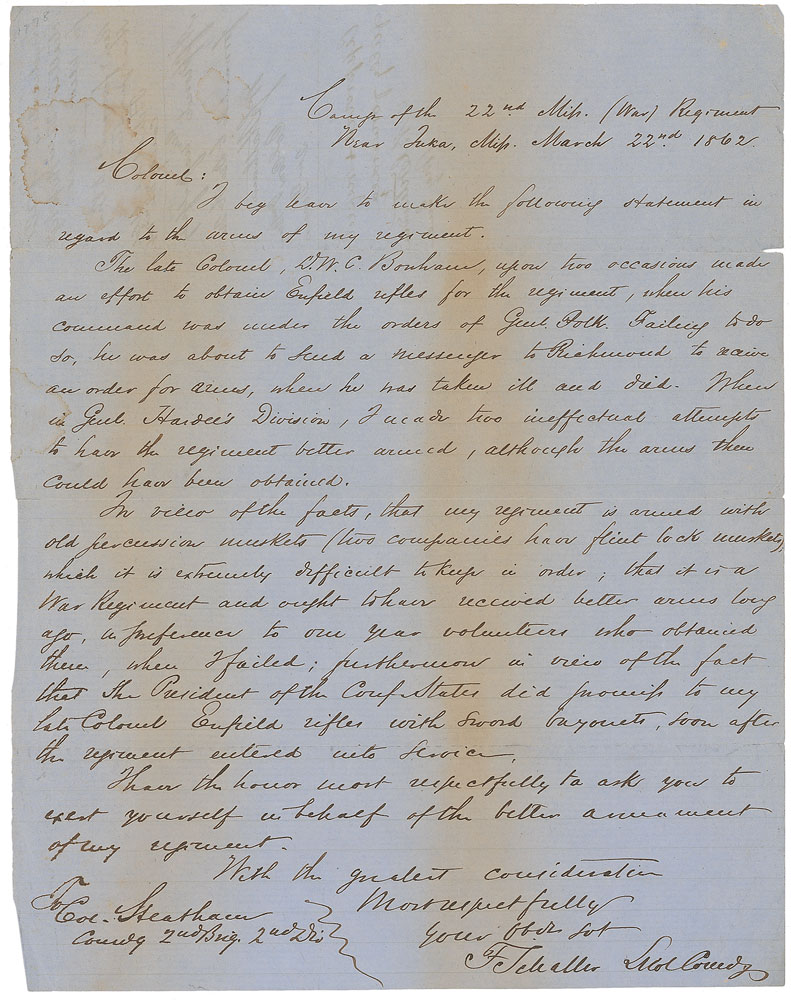 Camp of the 22nd Miss. (War) Regiment
Near Iuka, Miss. March 22nd 1862.
Colonel:
I beg leave to make the following statement in
regard to the arms of my regiment.
The late Colonel, D.W.C. Bonham, upon two occasions made
an effort to obtain Enfield rifles for the regiment, when his
command was under the orders of Genl. Polk. Failing to do
so, he was about to send a messenger to Richmond to receive
an order for arms, when he was taken ill and died. When
in Genl. Hardee's Division, I made two ineffectual attempts
to have the regiment better armed, although the arms then
could have been obtained.
In view of the facts, that my regiment is armed with
old percussion muskets (two companies have flint lock muskets),
which it is extremely difficult to keep in order; that it is a
War Regiment and ought to have received better arms long
ago, in preference to one year volunteers who obtained
them, when I failed; furthermore in view of the fact
that the President of the Conf. States did promise to my
late Colonel Enfield rifles with sword bayonets, soon after
the regiment entered into service,
I have the honor most respectfully to ask you to
exert yourself in behalf of the better armament
of my regiment.
With the greatest consideration
Most respectfully
your obdt svt
F. Schaller Lt Col Comdg
To
Col. Steatham
Comdg 2nd Brig. 2nd Div